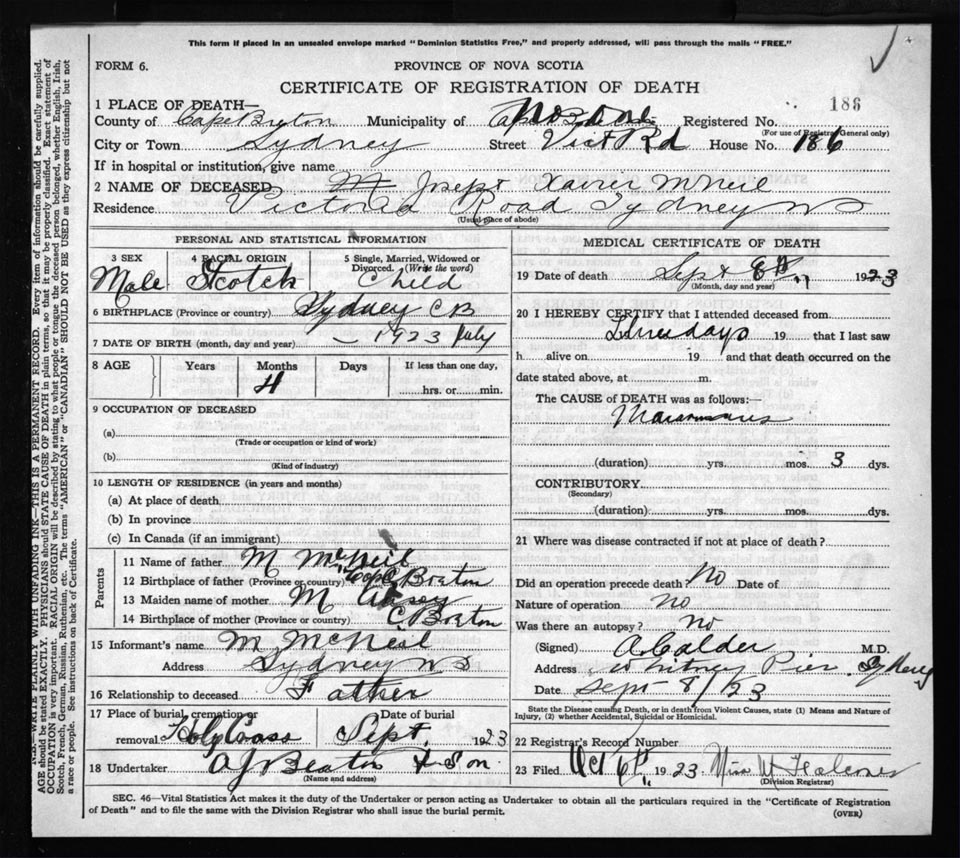 This form if placed in an unsealed envelope marked "Dominion Statistics Free," and properly addressed, will pass through the mails "FREE."
FORM 6.
PROVINCE OF NOVA SCOTIA
CERTIFICATE OF REGISTRATION OF DEATH
186
1 PLACE OF DEATH—
County of Cape Breton Municipality of Registered No.
(For use of Registrar General only)
City or Town Sydney Street Vict Rd House No. 186
If in hospital or institution, give name
2 NAME OF DECEASED Joseph Xavier McNeil
Residence Victoria Road Sydney NS
(Usual place of abode)
PERSONAL AND STATISTICAL INFORMATION
3 SEX 4 RACIAL ORIGIN 5 Single, Married, Widowed or Divorced. (Write the word)
Male Scotch Child
6 BIRTHPLACE (Province or country) Sydney CB
7 DATE OF BIRTH (month, day and year) – 1923 July
8 AGE Years Months Days If less than one day,
4 hrs. or min.
9 OCCUPATION OF DECEASED
(a)
(Trade or occupation or kind of work)
(b)
(Kind of industry)
10 LENGTH OF RESIDENCE (in years and months)
(a) At place of death
(b) In province
(c) In Canada (if an immigrant)
Parents
11 Name of father M McNeil
12 Birthplace of father (Province or country) Cape Breton
13 Maiden name of mother M
14 Birthplace of mother (Province or country) C Breton
15 Informant's name M McNeil
Address Sydney NS
16 Relationship to deceased Father
17 Place of burial, cremation or removal Holy Cross Date of burial Sept 1923
18 Undertaker A J Beaton & Son
(Name and address)
MEDICAL CERTIFICATE OF DEATH
19 Date of death Sept 8th 1923
(Month, day and year)
20 I HEREBY CERTIFY that I attended deceased from
Three days 19 that I last saw
h alive on 19 and that death occurred on the
date stated above, at m.
The CAUSE OF DEATH was as follows:
Marasmus
(duration) yrs. mos. 3 dys.
CONTRIBUTORY
(Secondary)
(duration) yrs. mos. dys.
21 Where was disease contracted if not at place of death?
Did an operation precede death? No Date of
Nature of operation no
Was there an autopsy? no
(Signed) A. Calder M.D.
Address Whitney Pier Sydney
Date Sept 8/23
State the Disease causing Death, or in death from Violent Causes, state (1) Means and Nature of
Injury, (2) whether Accidental, Suicidal or Homicidal.
22 Registrar's Record Number
23 Filed Oct 6th 1923 Miss
(Division Registrar)
SEC. 46—Vital Statistics Act makes it the duty of the Undertaker or person acting as Undertaker to obtain all the particulars required in the "Certificate of Registration
of Death" and to file the same with the Division Registrar who shall issue the burial permit.
(OVER)
WRITE PLAINLY WITH UNFADING INK—THIS IS A PERMANENT RECORD. Every item of information should be carefully supplied.
AGE should be stated EXACTLY. PHYSICIANS should STATE CAUSE OF DEATH in plain terms, so that it may be properly classified. Exact statement of
OCCUPATION is very important. RACIAL ORIGIN will be described by stating to what people or tongue the deceased person belonged, whether English, Irish,
Scotch, French, German, Russian, Ruthenian, etc. The terms "AMERICAN" or "CANADIAN" SHOULD NOT BE USED as they express citizenship but not
a race or people. See instructions on back of Certificate.